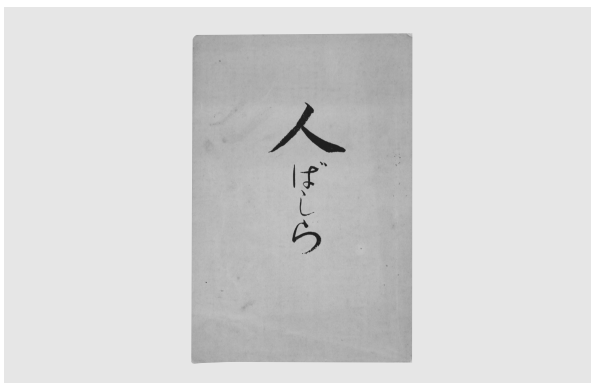 人ばしら